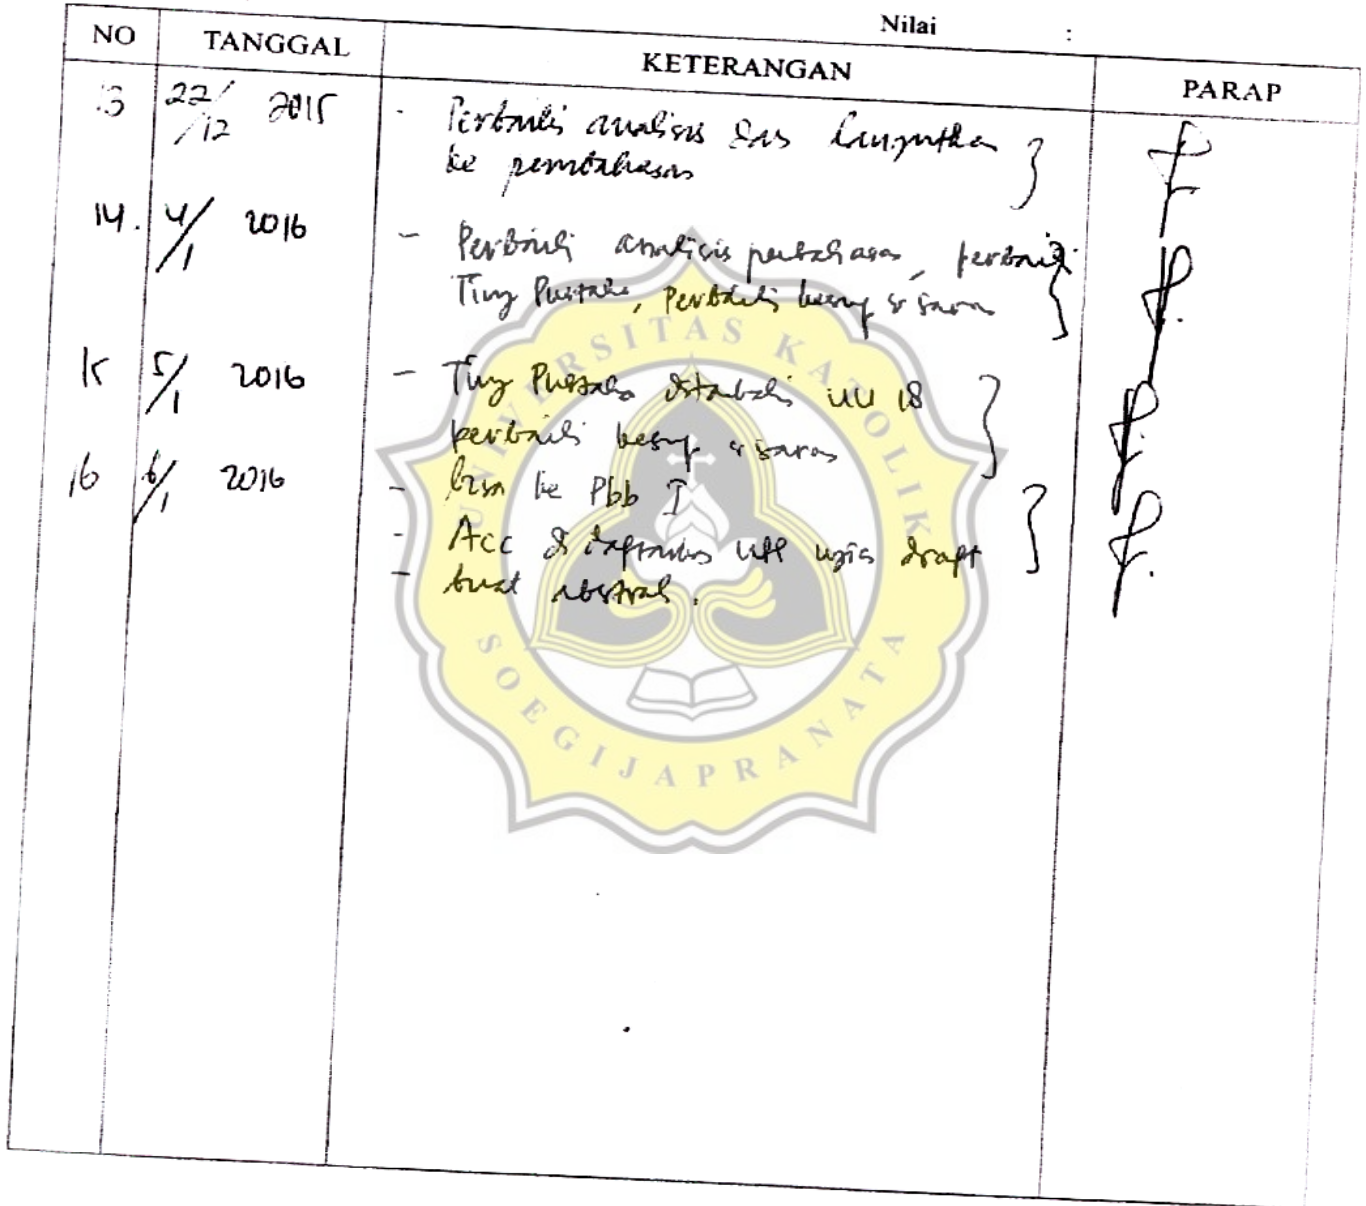 Nilai :
NO TANGGAL KETERANGAN PARAP
13 22/12 2015 - Perbaiki analisis dan lanjutkan
ke pembahasan
14. 4/1 2016 - Perbaiki analisis pembahasan, perbaiki
Tinj Pustaka, Perbaiki & saran
15 5/1 2016 - Tinj Pustaka ditambahi UU 18
perbaiki & saran
16 6/1 2016 - bisa ke Pbb I
- Acc didaftarkan utk ujian draft
- buat abstrak.
UNIVERSITAS KATOLIK
SOEGIJAPRANATA